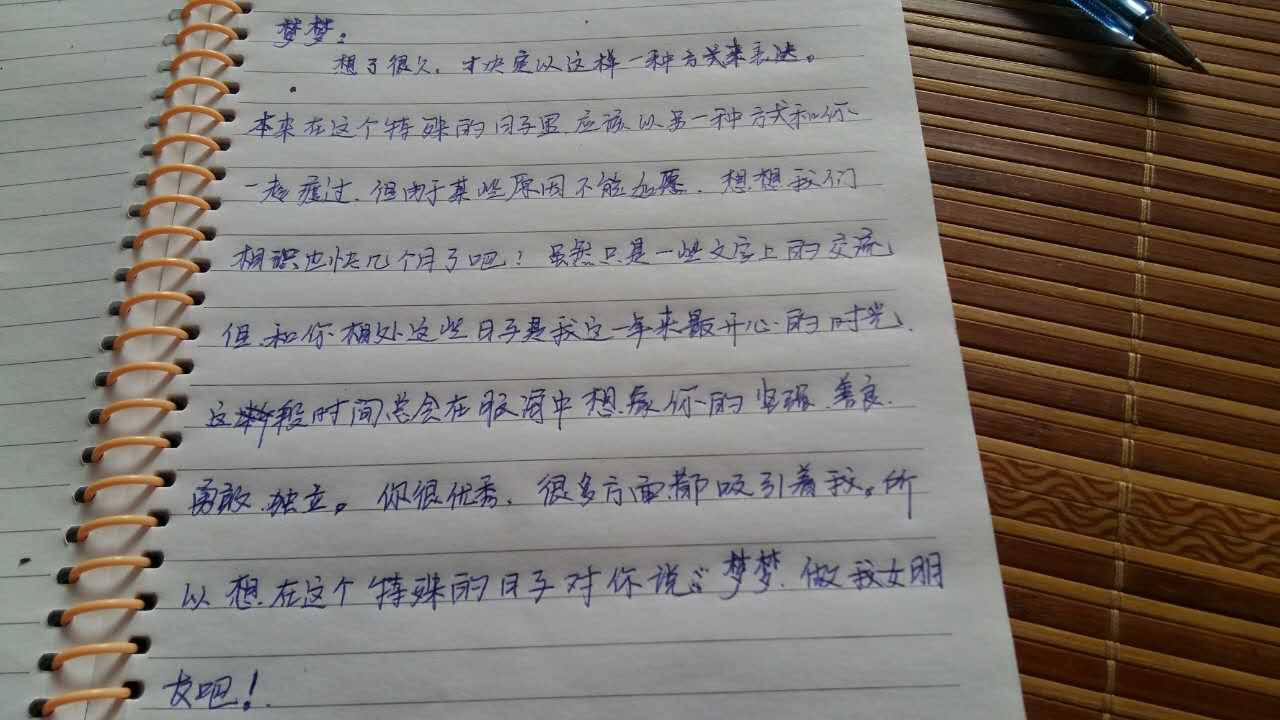 梦梦:
想了很久,才决定以这样一种方式来表达。
本来在这个特殊的日子里,应该以另一种方式和你
一起度过,但由于某些原因不能如愿,想想我们
相识也快几个月了吧!虽然只是一些文字上的交流
但和你相处这些日子是我这一年来最开心的时光,
这段时间总会在脑海中想象你的坚强、善良、
勇敢、独立。你很优秀,很多方面都吸引着我。所
以想在这个特殊的日子对你说:“梦梦,做我女朋
友吧!